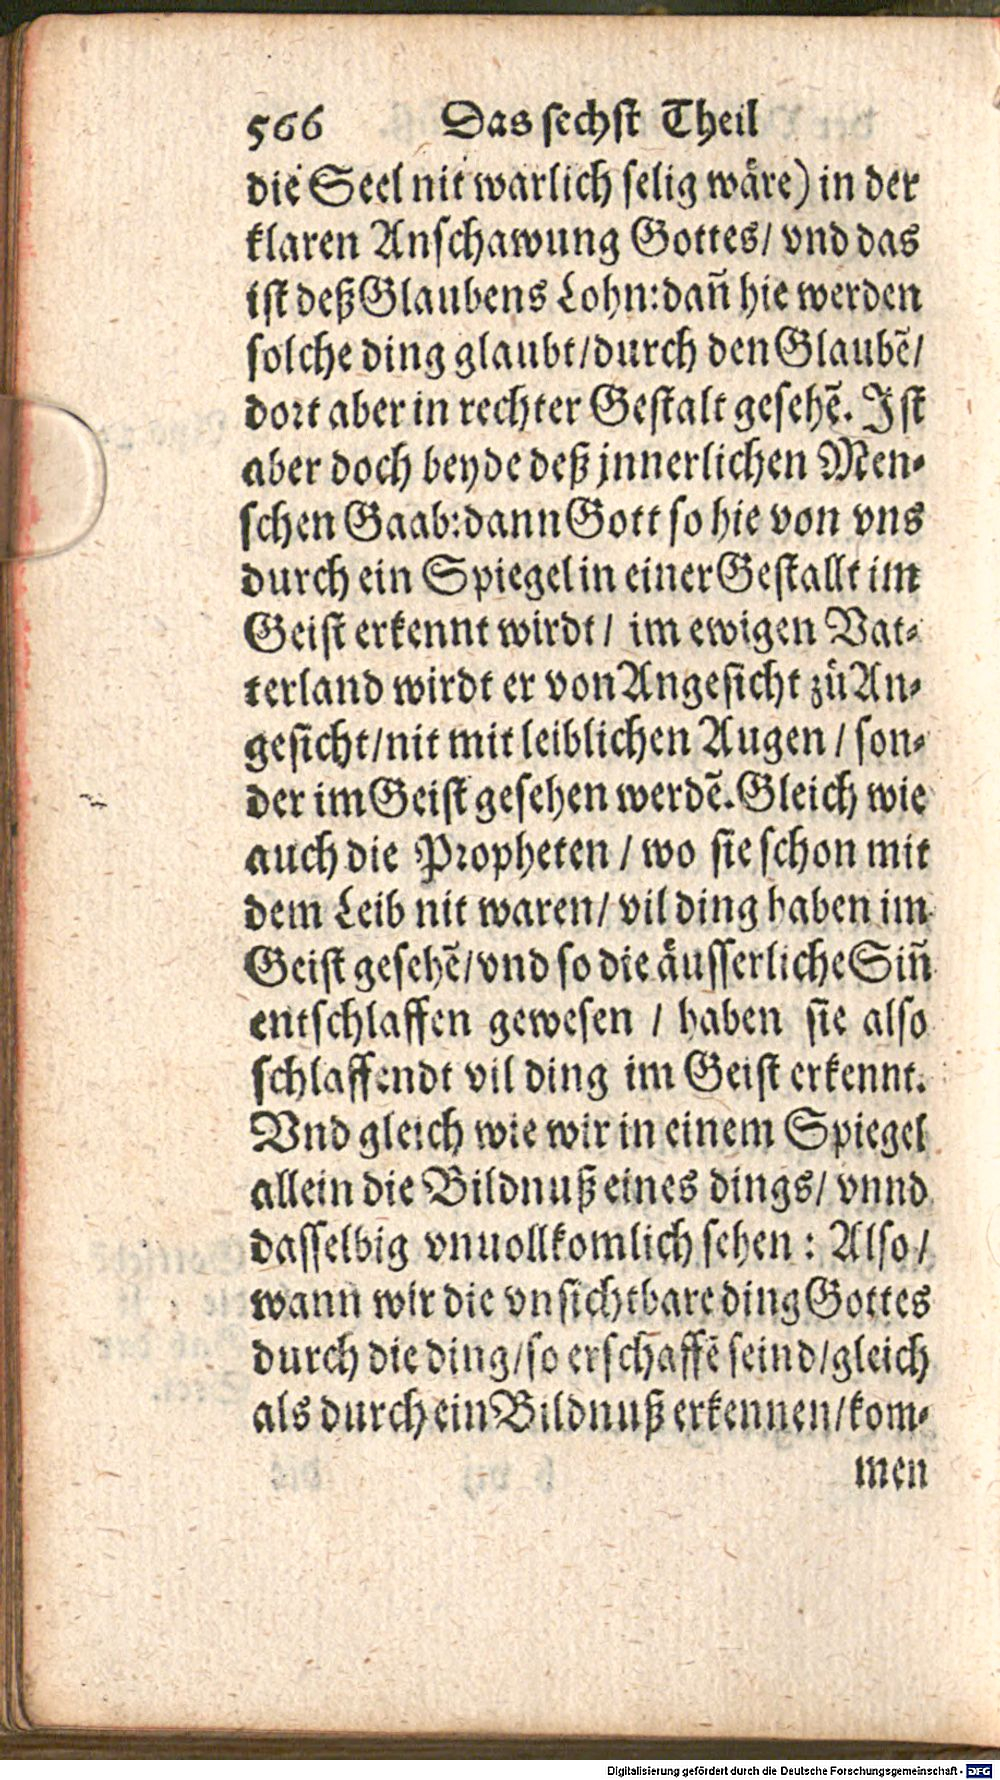 566 Das sechst Theil
die Seel nit warlich selig wäre) in der
klaren Anschawung Gottes/ vnd das
ist deß Glaubens Lohn: dañ hie werden
solche ding glaubt/durch den Glaubẽ/
dort aber in rechter Gestalt gesehẽ. Ist
aber doch beyde deß jnnerlichen Men-
schen Gaab: dann Gott so hie von vns
durch ein Spiegel in einer Gestallt im
Geist erkennt wirdt/ im ewigen Vat-
terland wirdt er von Angesicht zů An-
gesicht/nit mit leiblichen Augen/ son-
der im Geist gesehen werdẽ. Gleich wie
auch die Propheten/ wo sie schon mit
dem Leib nit waren/ vil ding haben im
Geist gesehẽ/vnd so die äusserliche Siñ
entschlaffen gewesen / haben sie also
schlaffendt vil ding im Geist erkennt.
Vnd gleich wie wir in einem Spiegel
allein die Bildnuß eines dings/ vnnd
dasselbig vnuollkomlich sehen: Also/
wann wir die vnsichtbare ding Gottes
durch die ding/so erschaffẽ seind/gleich
als durch ein Bildnuß erkennen/kom-
men
Digitalisierung gefördert durch die Deutsche Forschungsgemeinschaft - DFG